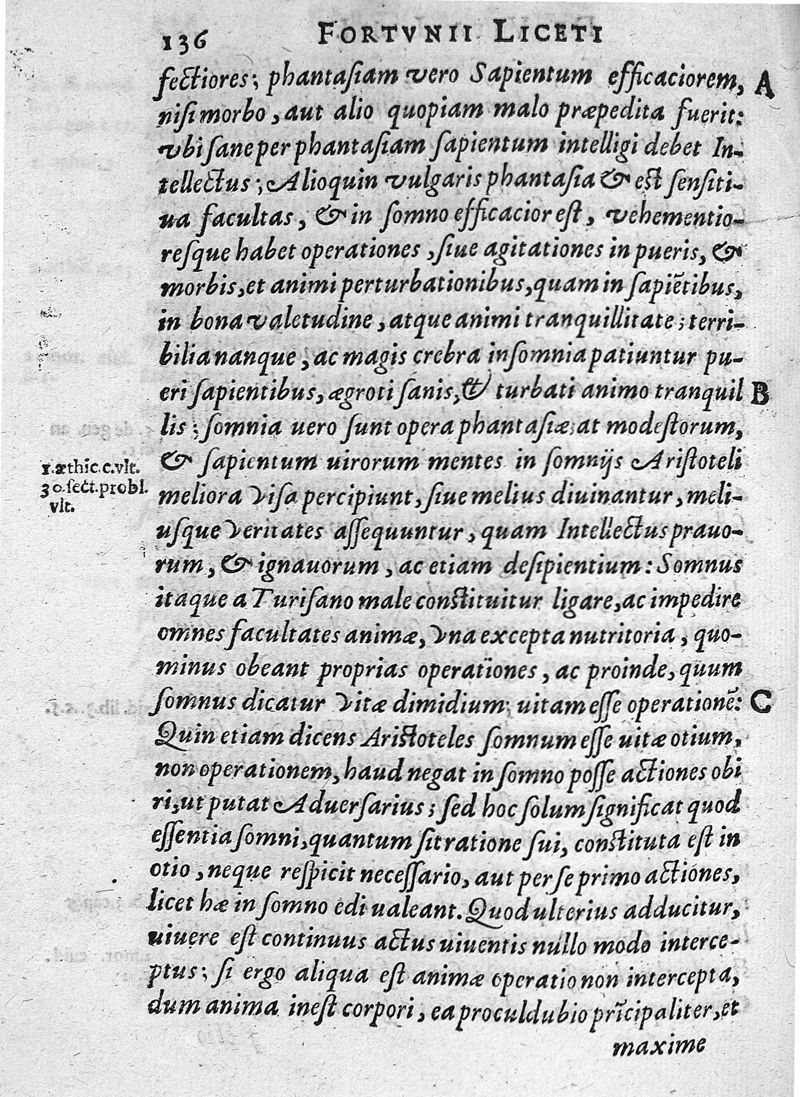 136 FORTVNII LICETI
fectiores; phantasiam vero Sapientum efficaciorem, A
nisi morbo, aut alio quopiam malo præpedita fuerit:
vbi sane per phantasiam sapientum intelligi debet In-
tellectus; Alioquin vulgaris phantasia & est sensiti-
ua facultas, & in somno efficacior est, vehementio-
resque habet operationes, siue agitationes in pueris, &
morbis, et animi perturbationibus, quam in sapiẽtibus,
in bona valetudine, atque animi tranquillitate; terri-
bilia nanque, ac magis crebra insomnia patiuntur pu-
eri sapientibus, ægroti sanis, & turbati animo tranquil B
lis; somnia uero sunt opera phantasiæ: at modestorum,
& sapientum uirorum mentes in somnijs Aristoteli
1.æthic.c.vlt.
30.sect.probl.
vlt.
meliora visa percipiunt, siue melius diuinantur, meli-
usque veritates assequuntur, quam Intellectus prauo-
rum, & ignauorum, ac etiam desipientium: Somnus
itaque a Turisano male constituitur ligare, ac impedire
omnes facultates animæ, vna excepta nutritoria, quo-
minus obeant proprias operationes, ac proinde, quum
somnus dicatur vitæ dimidium; uitam esse operationẽ: C
Quin etiam dicens Aristoteles somnum esse uitæ otium,
non operationem, haud negat in somno posse actiones obi
ri, ut putat Aduersarius; sed hoc solum significat quod
essentia somni, quantum sit ratione sui, constituta est in
otio, neque respicit necessario, aut per se primo actiones,
licet hæ in somno edi ualeant. Quod ulterius adducitur,
uiuere est continuus actus uiuentis nullo modo interce-
ptus; si ergo aliqua est animæ operatio non intercepta,
dum anima inest corpori, ea proculdubio prĩcipaliter, et
maxime